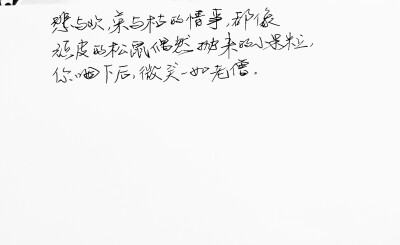 悲与欢,荣与枯的情事,都像
顽皮的松鼠偶然抛来的小果粒,
你咽下后,微笑一如老僧.